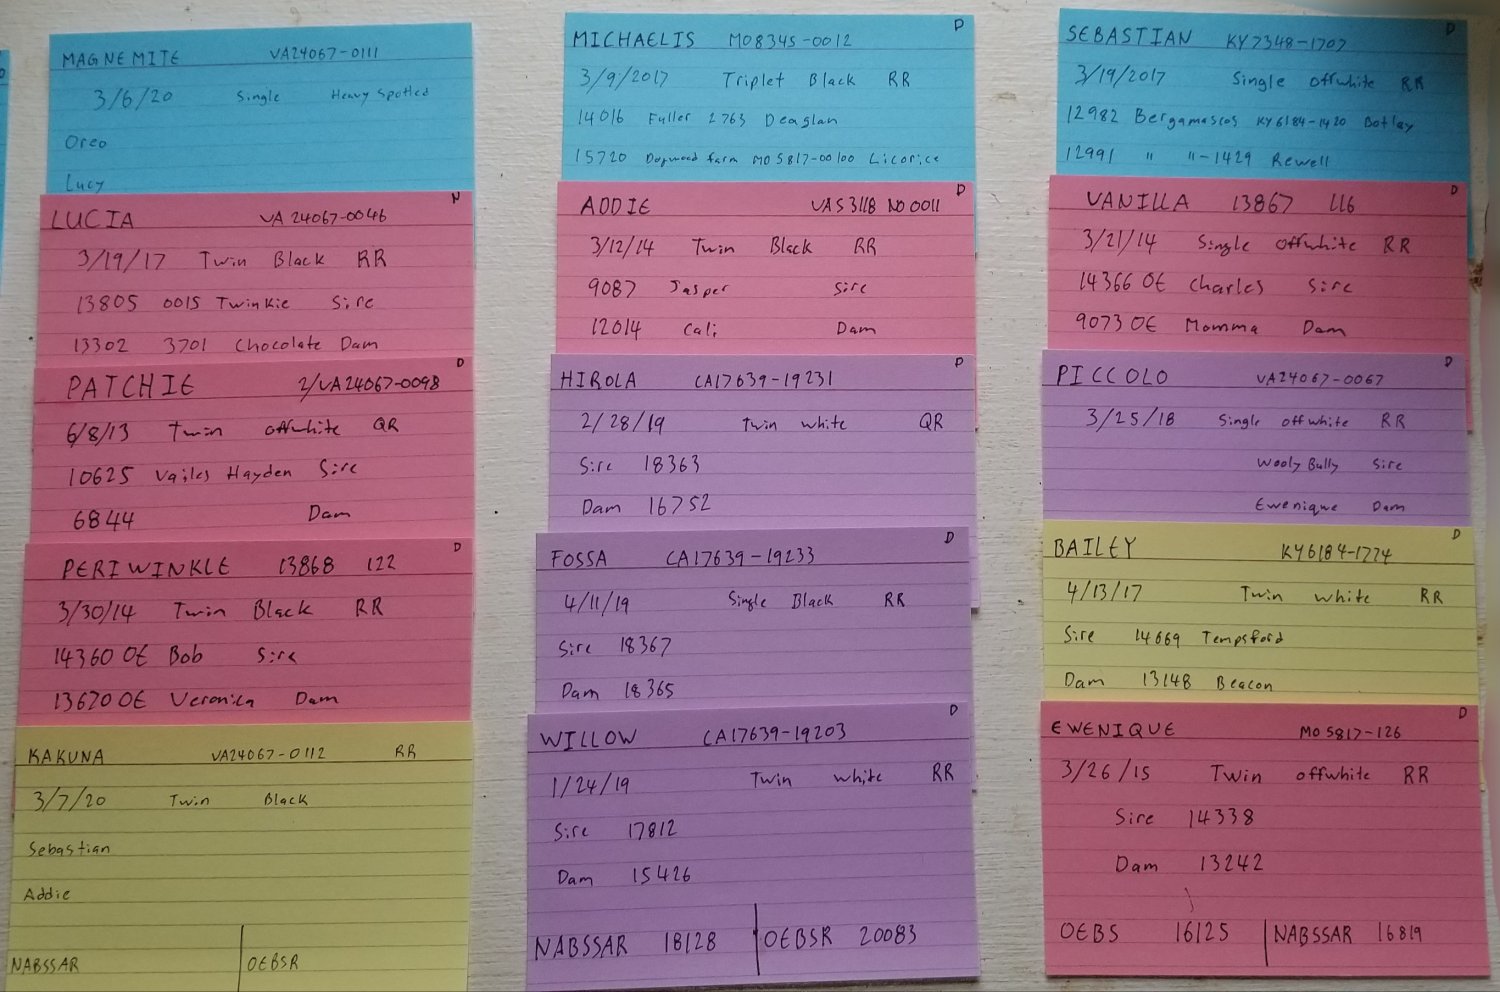 MAGNEMITE VA24067-0111
3/6/20 Single Heavy Spotted
Oreo
Lucy
N
LUCIA VA24067-0046
3/19/17 Twin Black RR
13805 0015 Twinkie Sire
13302 3701 Chocolate Dam
D
PATCHIE 2/VA24067-0098
6/8/13 Twin offwhite QR
10625 Vailes Hayden Sire
6844 Dam
D
PERIWINKLE 13868 122
3/30/14 Twin Black RR
14360 OE Bob Sire
13670 OE Veronica Dam
KAKUNA VA24067-0112 RR
3/7/20 Twin Black
Sebastian
Addie
NABSSAR OEBSR
D
MICHAELIS MO8345-0012
3/9/2017 Triplet Black RR
14016 Fuller 2763 Deaglan
15720 Dogwood farm MO5817-00100 Licorice
D
ADDIE VAS3118 NO 0011
3/12/14 Twin Black RR
9087 Jasper Sire
12014 Cali Dam
D
HIROLA CA17639-19231
2/28/19 Twin white QR
Sire 18363
Dam 16752
D
FOSSA CA17639-19233
4/11/19 Single Black RR
Sire 18367
Dam 18365
D
WILLOW CA17639-19203
1/24/19 Twin white RR
Sire 17812
Dam 15426
NABSSAR 18128 OEBSR 20083
D
SEBASTIAN KY7348-1707
3/19/2017 Single offwhite RR
12982 Bergamascos KY6184-1420 Botley
12991 " "-1429 Rewell
D
VANILLA 13867 116
3/21/14 Single offwhite RR
14366 OE Charles Sire
9073 OE Momma Dam
D
PICCOLO VA24067-0067
3/25/18 Single offwhite RR
Wooly Bully Sire
Ewenique Dam
D
BAILEY KY6184-1774
4/13/17 Twin white RR
Sire 14669 Tempsford
Dam 13148 Beacon
D
EWENIQUE MO5817-126
3/26/15 Twin offwhite RR
Sire 14338
Dam 13242
OEBS 16125 NABSSAR 16819